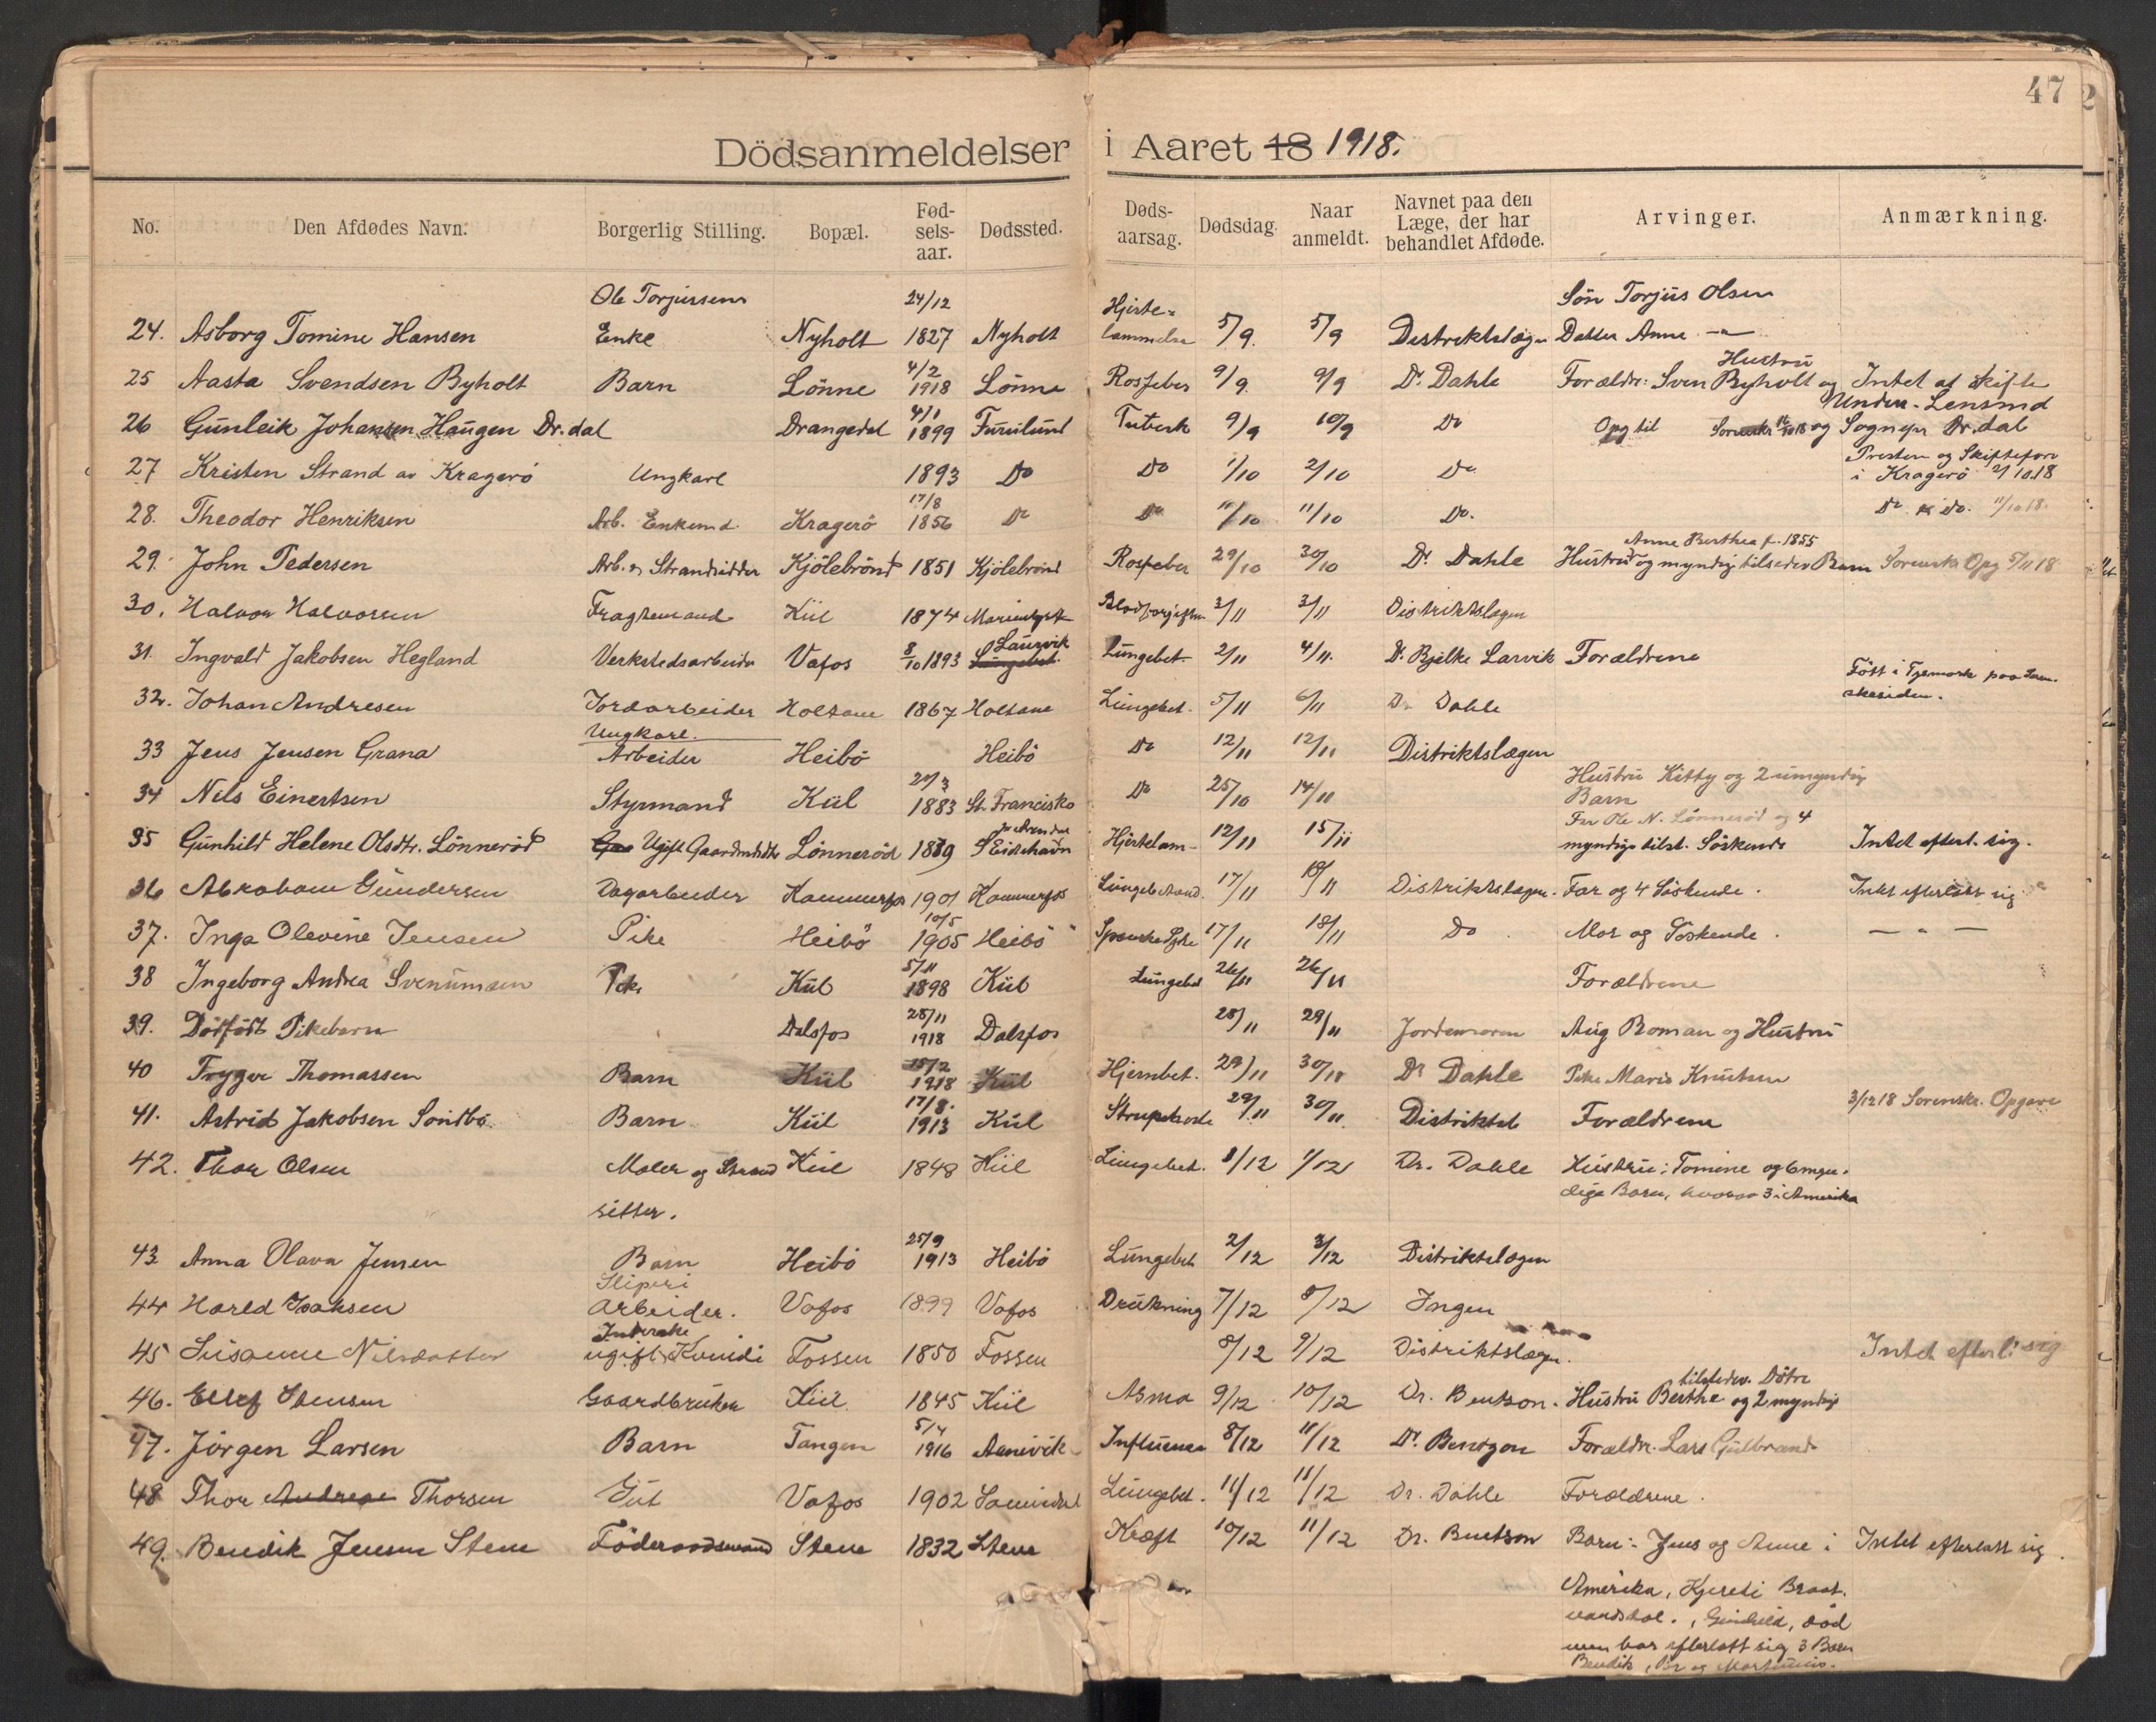 47
2
Dödsanmeldelser i Aaret 18 1918.
No. Den Afdødes Navn. Borgerlig Stilling. Bopæl. Fødselsaar. Dødssted. Dødsaarsag. Dødsdag. Naar anmeldt. Navnet paa den Læge, der har behandlet Afdøde. Arvinger. Anmærkning.
Ole Torjussens 24/12 Hjerte= Sön Torjus Olsen
24. Asborg Tomine Hansen Enke Nyholt 1827 Nyholt lammelse 5/9. 5/9 Destriktslægen Datter Anne —"—
4/2 Hustru
25 Aasta Svendsen Byholt Barn Lönne 1918 Lönne Rosfeber 9/9. 9/9 Dr. Dahle Forældr: Sven Byholt og Intet at skifte
4/1 Lensmd
26 Gunleik Johansen Haugen Dr.dal Drangedal 1899 Furulund Tuberk 9/9 10/9 Do Opg til og Sognepr Dr.dal
Presten og Skiftefor
27 Kristen Strand av Kragerö Ungkarl 1893 Do Do 1/10 2/10 Do i Kragerö 2/10.18
17/8
28. Theodor Henriksen Arb. Enkemd. Kragerö 1856 Do Do 11/10 11/10 Do. Do do. 11/10.18.
Anne Berthea f. 1855
29. John Pedersen Arb. & Strandsidder Kjölebrönd 1851 Kjölebrönd Rosfeber 29/10 30/10 Dr. Dahle Hustru og myndig tilstedev Barn Sorenskr Opg 5/11 18
30. Halvor Halvorsen Fragtemand Kiil 1874 Marienlyst Blodforgiftn 3/11 3/11 Distriktslægen
Laurvik
31. Ingvald Jakobsen Hegland Verkstedsarbeider Vafos 8/10 1893 Lungebet. Lungebet. 2/11 4/11. Dr. Bjelke Larvik Forældrene
Födt i
32. Johan Andresen Jordarbeider Holtane 1867 Holtane Lungebet. 5/11 6/11 Dr Dahle
Ungkarl.
33 Jens Jensen Grana Arbeider Heibö Heibö Do 12/11 12/11 Distriktslægen
Hustru Kitty og 2 umyndig
34 Nils Einertsen Styrmand Kiil 1883 St. Francisko Do 25/10 14/11 Barn
Far Ole N. Lönneröd og 4
35 Gunhild Helene Olsdtr. Lönneröd Ugift Gaardmdsdtr Lönneröd 1889 Eidehavn Hjertelam- 12/11 15/11 myndige tilst. Söskende Intet efterl. sig.
36 Abraham Gundersen Dagarbeider Kammerfos 1901 Kammerfos 17/11 18/11 Distriktslægen. Far og 4 Söskende. Intet efterlatt sig
10/5
37. Inga Olevine Jensen Pike Heibö 1905 Heibö Spanske Syke 17/11 18/11 Do Mor og Söskende. — " —
5/11
38 Ingeborg Andrea Svenumsen Pike Kiil 1898 Kiil Lungebet 26/11 26/11 Forældrene
28/11
39. Dödfödt Pikebarn Dalsfos 1918 Dalsfos 28/11 29/11 Jordmoren Aug Roman og Hustru
15/2
40 Trygve Thomassen Barn Kiil 1918 Kiil Hjernbet. 29/11 30/11 Dr Dahle Pike Marie Knutsen
17/8. 3/12 18 Sorenskr. Opgave
41. Astrid Jakobsen Sondbö Barn Kiil 1913 Kiil Strupehoste 29/11 30/11. Distriktsl Forældrene
42. Thor Olsen Maler og Strand Kiil 1848 Kiil Lungebet. 1/12 1/12 Dr. Dahle Hustru: Tomine og 6 myn-
sitter. dige Barn, hvorav 3 i Amerika
25/9
43 Anna Olava Jensen Barn Heibö 1913 Heibö Lungebet 2/12 3/12 Distriktslægen
Sliperi
44 Harald Isaksen arbeider. Vafos 1899 Vafos Drukning 7/12 8/12 Ingen
Inderste
45 Susanne Nilsdatter ugift Kvinde Fossen 1850 Fossen 8/12 9/12 Distriktslægen. Intet efterl. sig
tilstedev. Dötre
46. Ellef Stensen Gaardbruker Kiil 1845 Kiil Asma 9/12 10/12 Dr. Bentson. Hustru Berthe og 2 myndige
5/4
47. Jörgen Larsen Barn Tangen 1916 Aanevik Influensa 8/12 11/12 Dr. Bentzon Forældr. Lars Gulbrands
48 Thor Andreas Thorsen Gut Vafos 1902 Lungebet. 11/12 11/12 Dr. Dahle Forældrene.
49. Bendik Jensen Stene Föderaadsmand Stene 1832 Stene Kræft 10/12 11/12 Dr. Bentson Barn: Jens og Anne i Intet efterlatt sig.
Amerika, Kjersti Braat.
Gunhild, död
men har efterlatt sig 3 Barn
Bendik, og